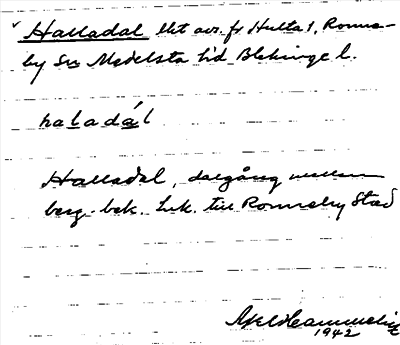 Halladal lht avs. fr Hulta 1, Ronne-
by Sn Medelsta hd Blekinge l.
haladál
Halladal, dalgång mellan
berg. bek. till Ronneby Stad
1942